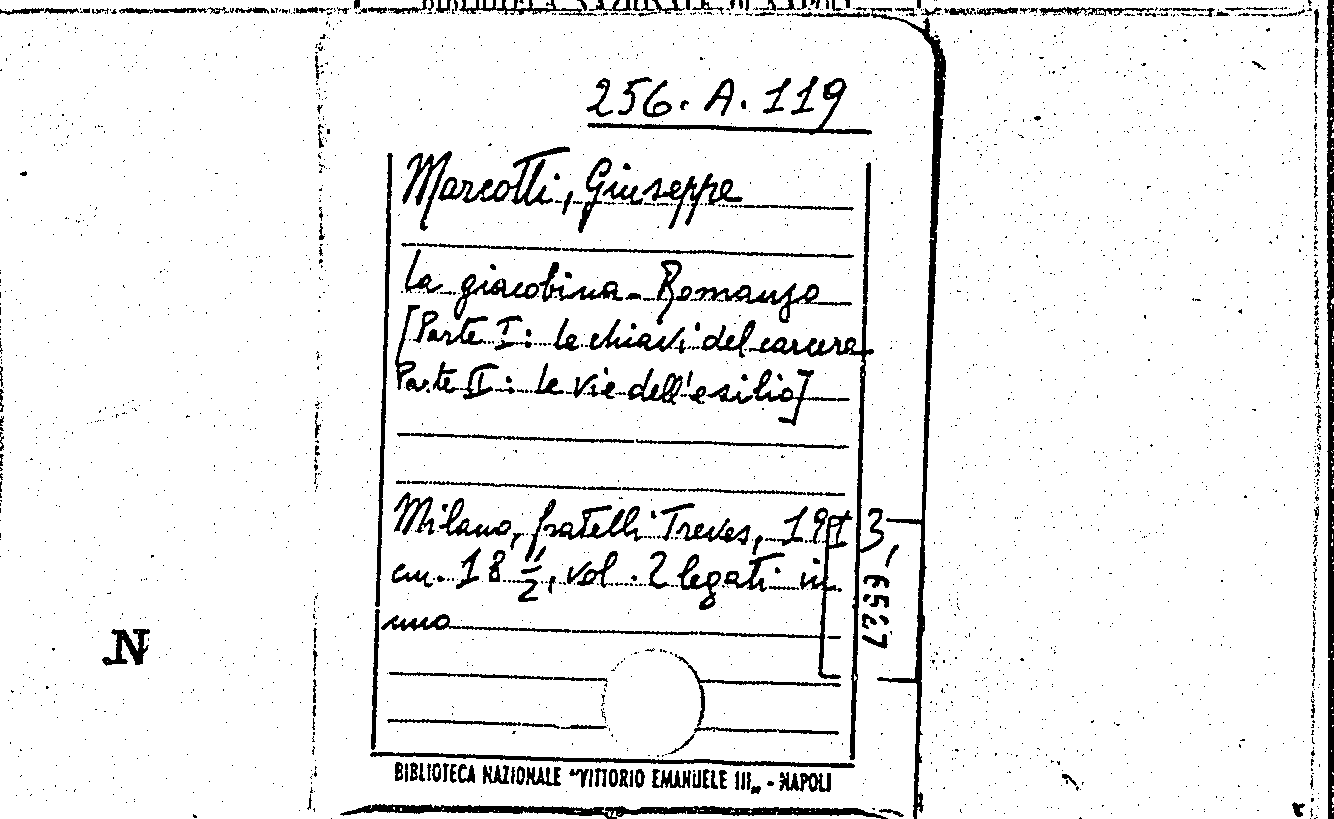 BIBLIOTECA NAZIONALE DI NAPOLI
256. A. 119
Marcotti, Giuseppe
La giacobina - Romanzo
[Parte I: Le chiavi del carcere
Parte II: Le vie dell'esilio]
Milano, fratelli Treves, 1913,
cm. 18 1/2, vol. 2 legati in
uno
6527
N
BIBLIOTECA NAZIONALE "VITTORIO EMANUELE III„ - NAPOLI